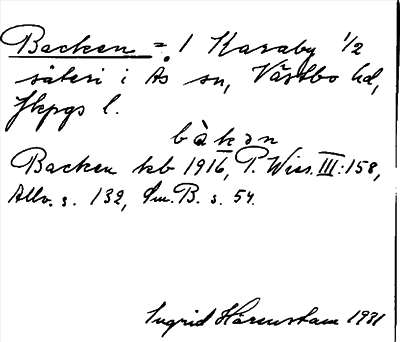 Backen = 1 Karaby 1/2
säteri i Ås sn, Västbo hd,
Jkpgs l.
bàkən
Backen kb 1916, P. Wies. III:158,
Allv. s. 132, Öm. B. s. 54.
Ingrid Hårenstam 1931